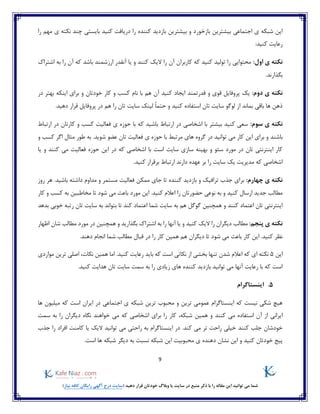 این شبکه ی اجتماعی بیشترین بازخورد و بیشترین بازدید کننده را دریافت کنید بایستی چند نکته ی مهم را
رعایت کنید:
نکته ی اول: محتوایی را تولید کنید که کاربران آن را لایک کنند و یا آنقدر ارزشمند باشد که آن را به اشتراک
بگذارند.
نکته ی دوم: یک پروفایل قوی و قدرتمند ایجاد کنید آن هم با نام کسب و کار خودتان و برای اینکه بهتر در
ذهن ها باقی بماند از لوگو سایت تان استفاده کنید و حتماً لینک سایت تان را هم در پروفایل قرار دهید.
نکته ی سوم: سعی کنید بیشتر با اشخاصی در ارتباط باشید که با حوزه ی فعالیت کسب و کارتان در ارتباط
باشند و برای این کار می توانید در گروه های مرتبط با حوزه ی فعالیت تان عضو شوید. به طور مثال اگر کسب و
کار اینترنتی تان در مورد سئو و بهینه سازی سایت است با اشخاصی که در این حوزه فعالیت می کنند و یا
اشخاصی که مدیریت یک سایت را بر عهده دارند ارتباط برقرار کنید.
نکته ی چهارم: برای جذب ترافیک و بازدید کننده تا جای ممکن فعالیت مستمر و مداوم داشته باشید. هر روز
مطالب جدید ارسال کنید و به نوعی حضورتان را اعلام کنید. این مورد باعث می شود تا مخاطبین به کسب و کار
اینترنتی تان اعتماد کنند و همچنین گوگل هم به سایت شما اعتماد کند تا بتواند به سایت تان رتبه خوبی بدهد
نکته ی پنجم: مطالب دیگران را لایک کنید و یا آنها را به اشتراک بگذارید و همچنین در مورد مطالب شان اظهار
نظر کنید. این کار باعث می شود تا دیگران هم همین کار را در قبال مطالب شما انجام دهند.
این ۵ نکته ای که اعلام شدن تنها بخشی از نکاتی است که باید رعایت کنید. اما همین نکات، اصلی ترین مواردی
است که با رعایت آنها می توانید بازدید کننده های زیادی را به سمت سایت تان هدایت کنید.
۵. اینستاگرام
هیچ شکی نیست که اینستاگرام عمومی ترین و محبوب ترین شبکه ی اجتماعی در ایران است که میلیون ها
ایرانی از آن استفاده می کنند و همین شبکه، کار را برای اشخاصی که می خواهند نگاه دیگران را به سمت
خودشان جلب کنند خیلی راحت تر می کند. در اینستاگرام به راحتی می توانید لایک یا کامنت افراد را جذب
پیج خودتان کنید و این نشان دهنده ی محبوبیت این شبکه نسبت به دیگر شبکه ها است.
9
Kafe Niaz .com
شما می توانید این مقاله را با ذکر منبع در سایت یا وبلاگ خودتان قرار دهید. (سایت درج آگهی رایگان کافه نیاز)